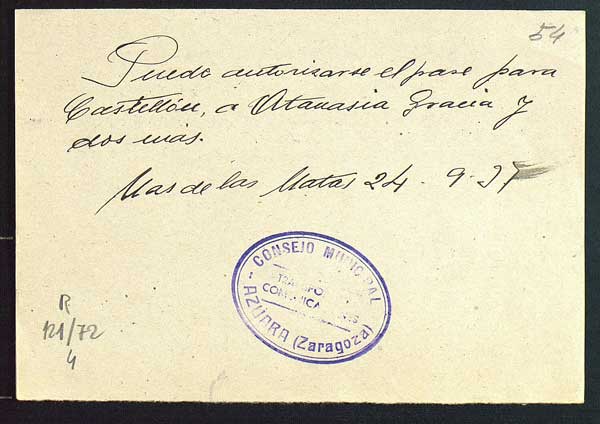 54
Puede autorizarse el pase para
Castellón, a Atanasia Gracia y
dos más.
Mas de las Matas 24 - 9 - 37
- CONSEJO MUNICIPAL -
AZUARA (Zaragoza)
R
121/72
4